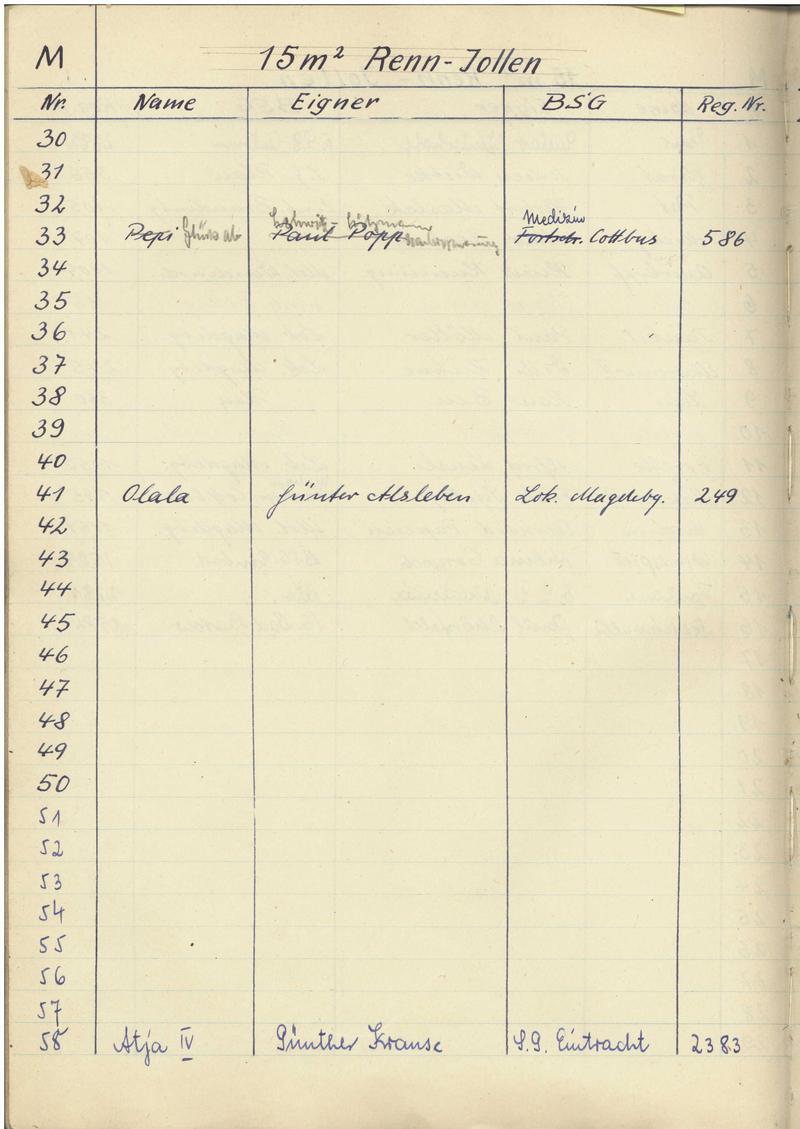 M 15m² Renn-Jollen
Nr. Name Eigner BSG Reg. Nr.
30
31
32
Medizin
33 Pepi Glück ab Paul Popp Fortschr. Cottbus 586
34
35
36
37
38
39
40
41 Olala Günter Alsleben Lok. Magdebg. 249
42
43
44
45
46
47
48
49
50
51
52
53
54
55
56
57
58 Atja IV Günther Krause S.G. Eintracht 2383